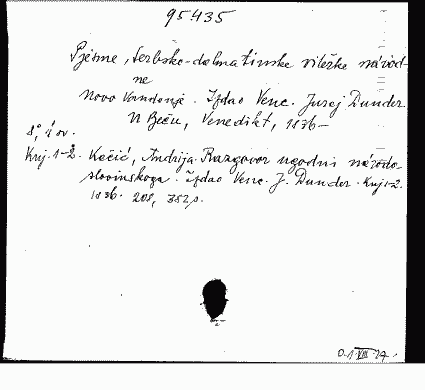 95435
Pjesme, Serbsko-dalmatinske vitežke národ-
ne
Novo Vandanje. Izdao Venc. Juraj Dunder.
U Beču, Venedikt, 1836-
8°, i ov.
Knj. 1-2. Kačić, Andrija. Razgovor ugodni národa
slovinskoga. Izdao Venc. J. Dunder. Knj 1-2.
1836. 208, 382 s.